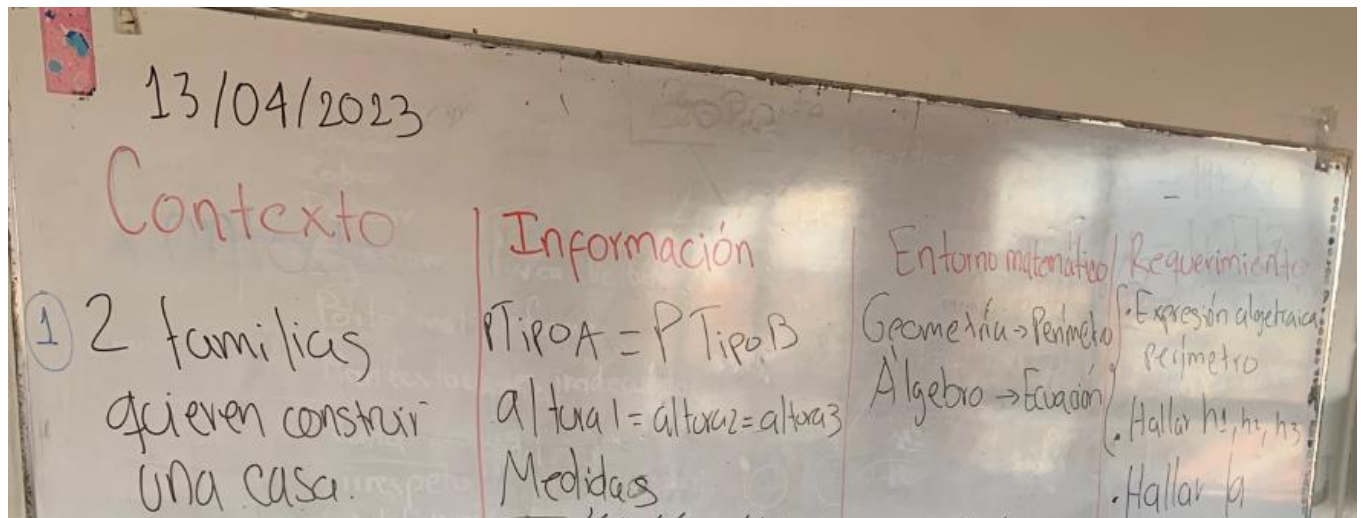 13/04/2023
Contexto
1 2 familias
quieren construir
una casa.
Información
PTipoA = PTipoB
altura1 = altura2 = altura3
Medidas
Entorno matemático
Geometría → Perímetro
Álgebra → Ecuación
Requerimiento
· Expresión algebraica
perímetro
· Hallar h1, h2, h3
· Hallar la